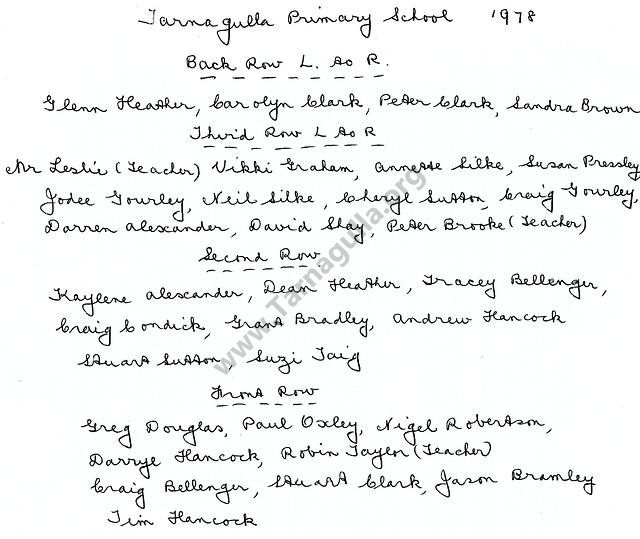 Tarnagulla Primary School 1978
Back Row L. to R.
Glenn Heather, Carolyn Clark, Peter Clark, Sandra Brown
Thrid Row L to R
Mr Leslie (Teacher) Vikki Graham, Annette Silke, Susan Pressley
Jodee Gourley, Neil Silke, Cheryl Sutton, Craig Gourley,
Darren Alexander, David Slay, Peter Brooke (Teacher)
Second Row
Kaylene Alexander, Dean Heather, Tracey Bellenger,
Craig Condick, Grant Bradley, Andrew Hancock
Stuart Sutton, Suzi Taig
Front Row
Greg Douglas, Paul Oxley, Nigel Robertson,
Darrye Hancock, Robin Taylor (Teacher)
Craig Bellenger, Stuart Clark, Jason Bramley
Tim Hancock
www.Tarnagulla.org